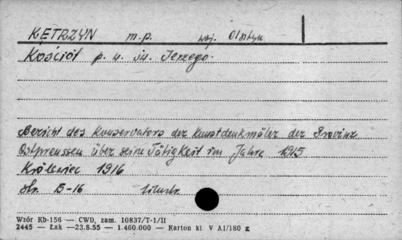 KĘTRZYN m.p. woj. Olsztyn
Kościół p. w. św. Jerzego.
Bericht des Konservators der Kunstdenkmäler der Provinz
Ostpreussen über seine Tätigkeit im Jahre 1915
Królewiec 1916
str. 15-16 ilustr.
Wzór Kb-156 — CWD, zam. 10837/T-1/II
2445 — Łak — 23.8.55 — 1.460.000 — Karton kl. V A1/180 g